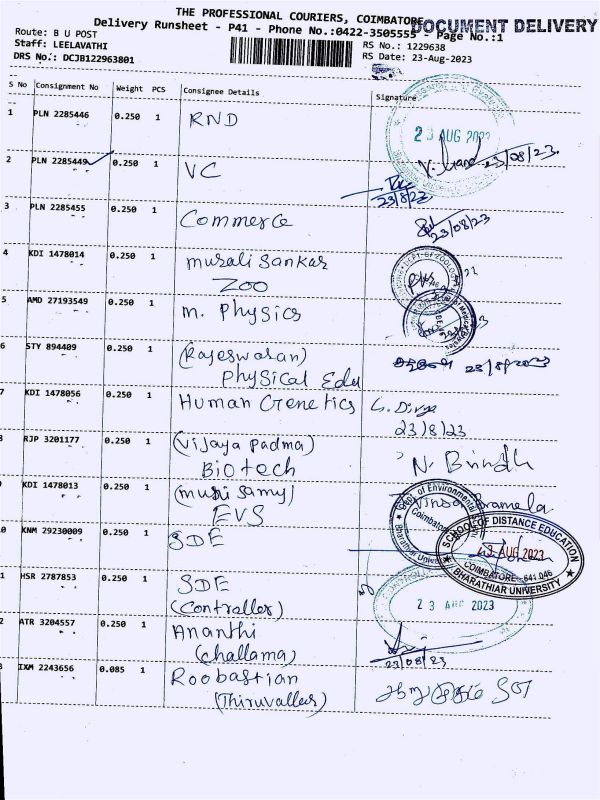 THE PROFESSIONAL COURIERS, COIMBATORE
DOCUMENT DELIVERY
Delivery Runsheet - P41 - Phone No.:0422-3505555 - Page No.:1
Route: B U POST
Staff: LEELAVATHI
DRS No.: DCJB122963801
RS No.: 1229638
RS Date: 23-Aug-2023
S No Consignment No Weight PCS Consignee Details Signature
1 PLN 2285446 0.250 1 RND
23 AUG 2023
23/08/23
2 PLN 2285449 0.250 1 VC
23/8/23
3 PLN 2285455 0.250 1 Commerce
23/08/23
4 KDI 1478014 0.250 1 murali Sankar
ZOO
5 AMD 27193549 0.250 1 m. Physics
6 STY 894409 0.250 1 (Rajeswaran)
Physical Edu
23/8/2023
7 KDI 1478056 0.250 1 Human Genetics
G. Divya
23/8/23
8 RJP 3201177 0.250 1 (Vijaya Padma)
Biotech
N. Brindh
9 KDI 1478013 0.250 1 (muni samy)
EVS
Dept. of Environmental
Coimbatore
Bharathiar
10 KNM 29230009 0.250 1 SDE
SCHOOL OF DISTANCE EDUCATION
23 AUG 2023
COIMBATORE - 641 046
BHARATHIAR UNIVERSITY
11 HSR 2787853 0.250 1 SDE
(Controller)
23 AUG 2023
12 ATR 3204557 0.250 1 Ananthi
(challama)
23/08/23
13 IXM 2243656 0.085 1 Roobastian
(Thiruvallur)